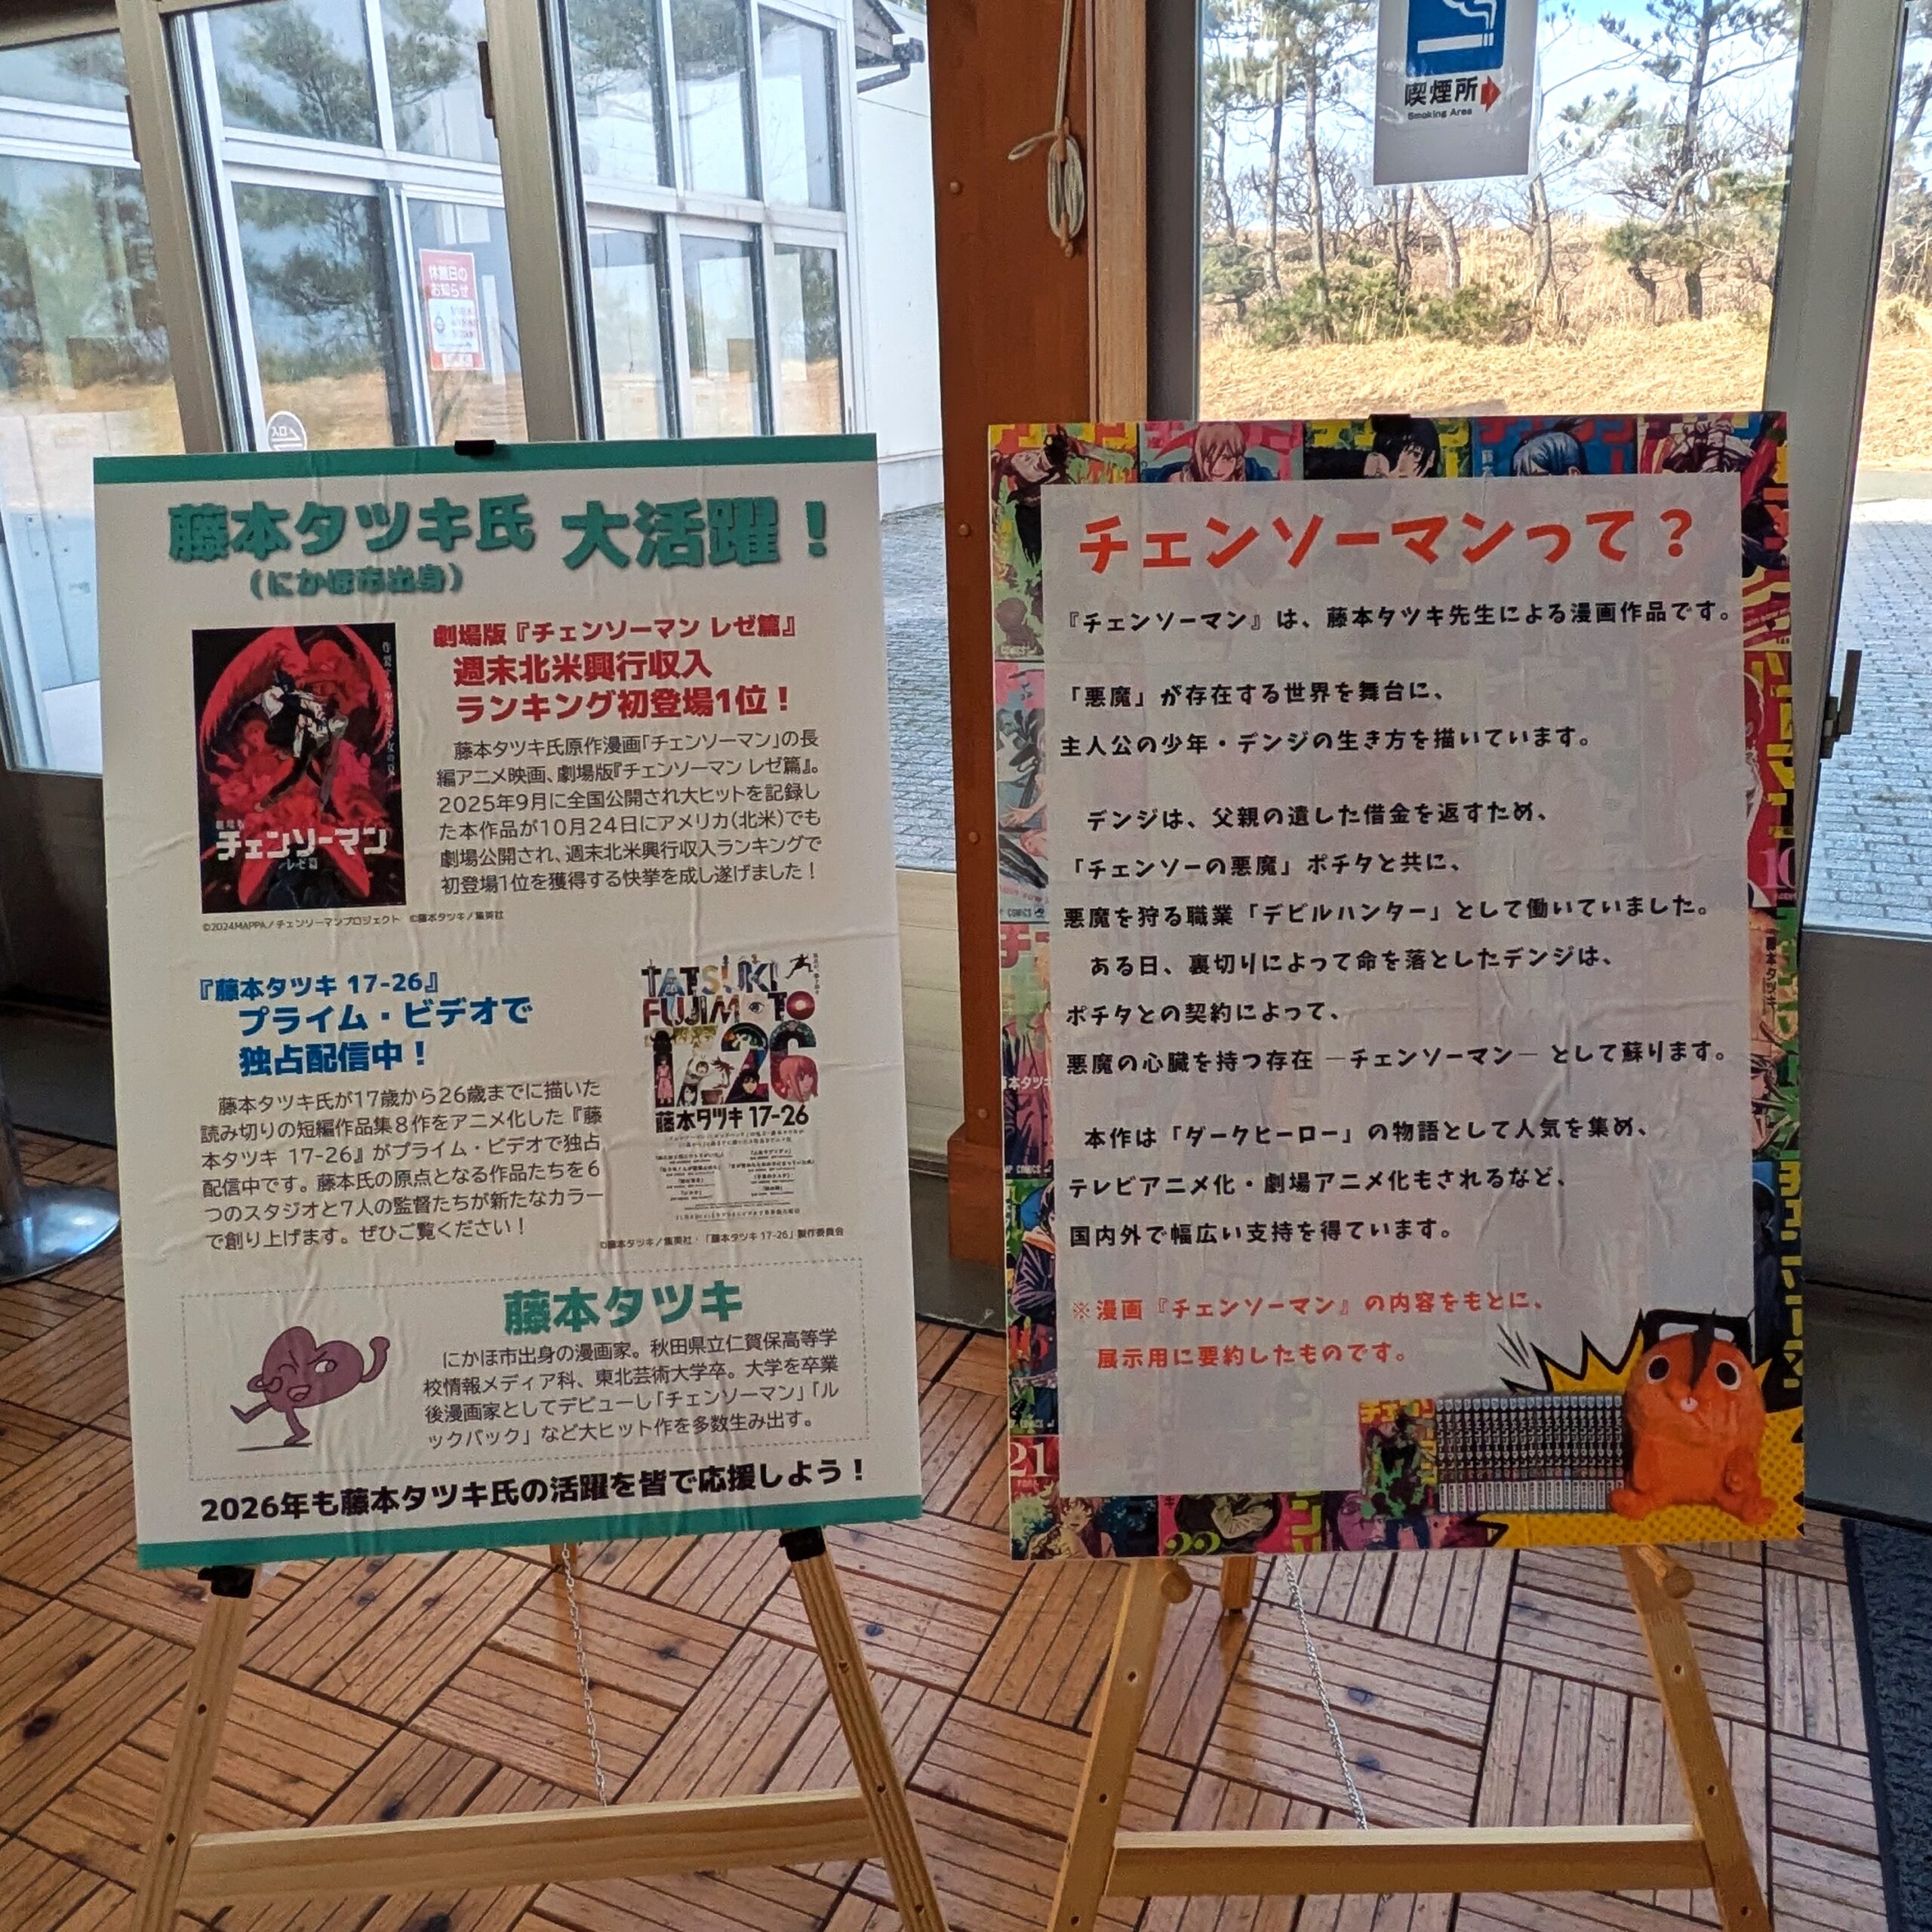 喫煙所
Smoking Area
休館日の
お知らせ
入口
藤本タツキ氏 大活躍！
（にかほ市出身）
劇場版『チェンソーマン レゼ篇』
週末北米興行収入
ランキング初登場1位！
藤本タツキ氏原作漫画「チェンソーマン」の長
編アニメ映画、劇場版『チェンソーマン レゼ篇』。
2025年9月に全国公開され大ヒットを記録し
た本作品が10月24日にアメリカ(北米)でも
劇場公開され、週末北米興行収入ランキングで
初登場1位を獲得する快挙を成し遂げました！
劇場版
チェンソーマン
レゼ篇
©2024MAPPA／チェンソーマンプロジェクト ©藤本タツキ／集英社
『藤本タツキ 17-26』
プライム・ビデオで
独占配信中！
藤本タツキ氏が17歳から26歳までに描いた
読み切りの短編作品集8作をアニメ化した『藤
本タツキ 17-26』がプライム・ビデオで独占
配信中です。藤本氏の原点となる作品たちを6
つのスタジオと7人の監督たちが新たなカラー
で創り上げます。ぜひご覧ください！
TATSUKI
FUJIMOTO
17-26
藤本タツキ 17-26
©藤本タツキ／集英社・「藤本タツキ 17-26」製作委員会
藤本タツキ
にかほ市出身の漫画家。秋田県立仁賀保高等学
校情報メディア科、東北芸術大学卒。大学を卒業
後漫画家としてデビューし「チェンソーマン」「ル
ックバック」など大ヒット作を多数生み出す。
2026年も藤本タツキ氏の活躍を皆で応援しよう！
チェンソーマンって？
『チェンソーマン』は、藤本タツキ先生による漫画作品です。
「悪魔」が存在する世界を舞台に、
主人公の少年・デンジの生き方を描いています。
デンジは、父親の遺した借金を返すため、
「チェンソーの悪魔」ポチタと共に、
悪魔を狩る職業「デビルハンター」として働いていました。
ある日、裏切りによって命を落としたデンジは、
ポチタとの契約によって、
悪魔の心臓を持つ存在 ―チェンソーマン― として蘇ります。
本作は「ダークヒーロー」の物語として人気を集め、
テレビアニメ化・劇場アニメ化もされるなど、
国内外で幅広い支持を得ています。
※漫画『チェンソーマン』の内容をもとに、
展示用に要約したものです。
藤本タツキ
21
22